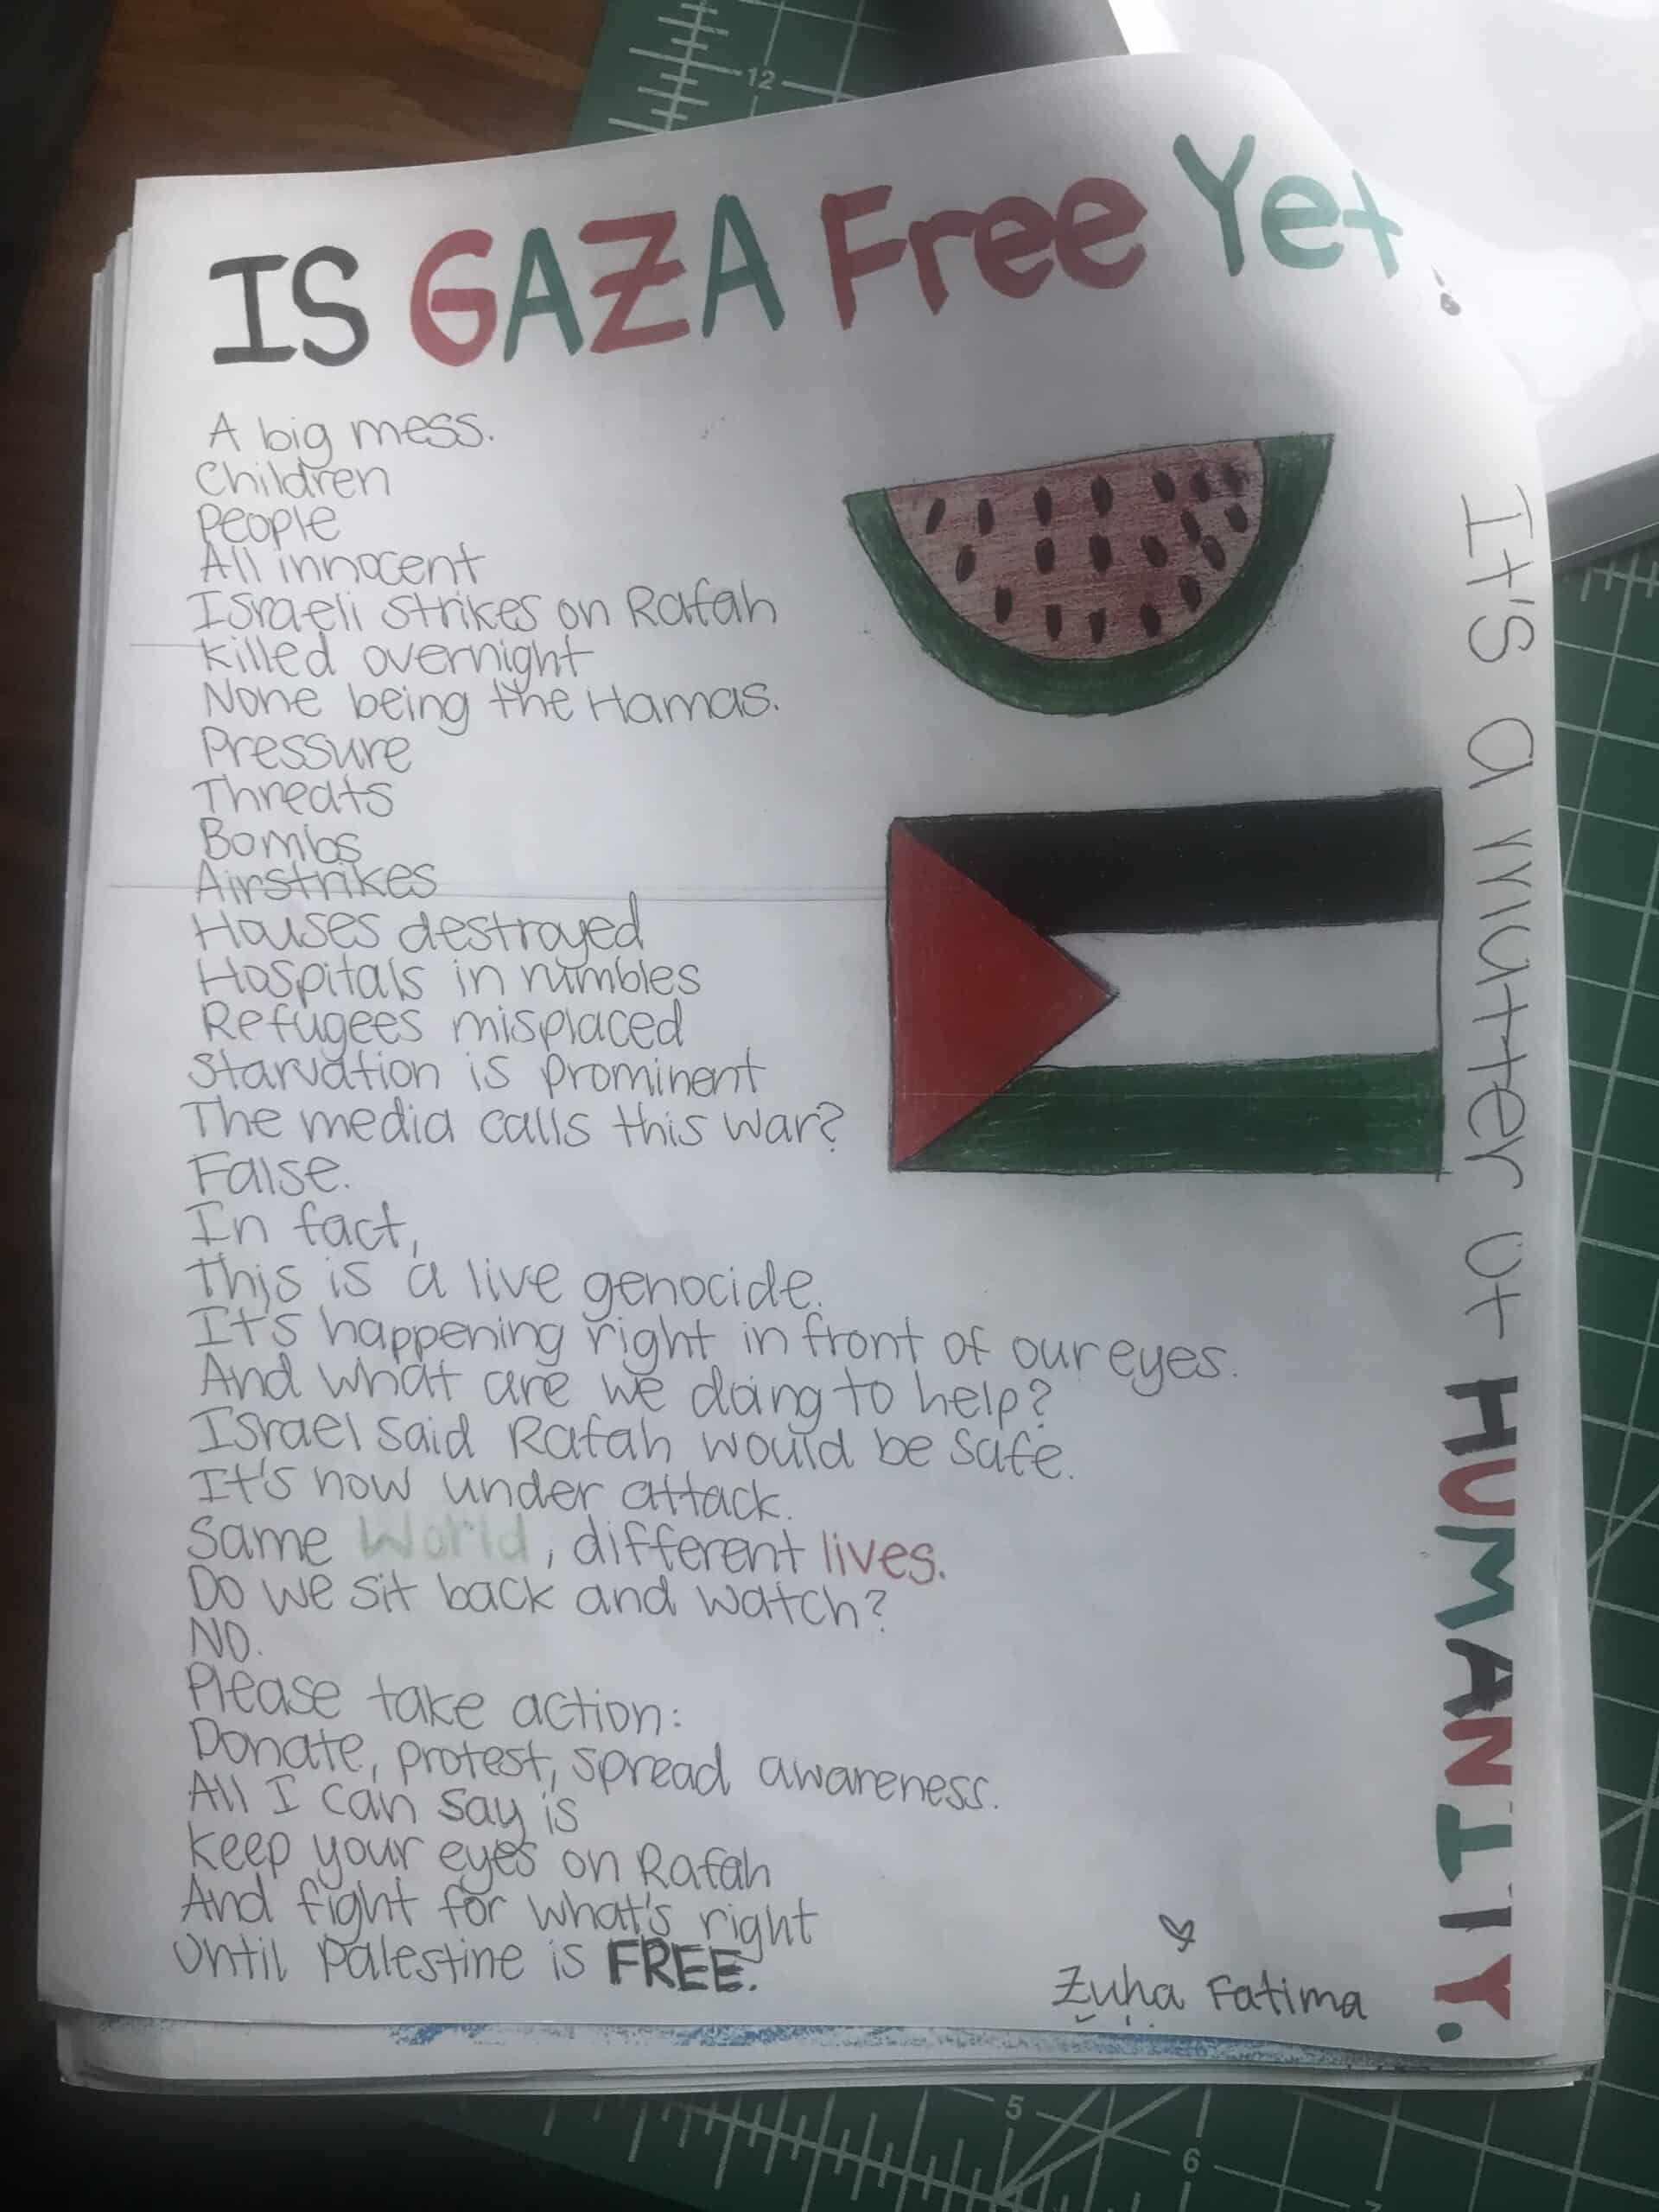 IS GAZA Free Yet.
A big mess.
Children
People
All innocent
Israeli strikes on Rafah
killed overnight
None being the Hamas.
Pressure
Threats
Bombs
Airstrikes
Houses destroyed
Hospitals in rumbles
Refugees misplaced
Starvation is prominent
The media calls this war?
False.
In fact,
This is a live genocide.
It's happening right in front of our eyes.
And what are we doing to help?
Israel said Rafah would be safe.
It's now under attack.
Same World, different lives.
Do we sit back and watch?
NO.
Please take action:
Donate, protest, spread awareness.
All I can say is
keep your eyes on Rafah
And fight for what's right
Until Palestine is FREE.
It's a matter of HUMANITY.
Zuha Fatima
12
5
6
7